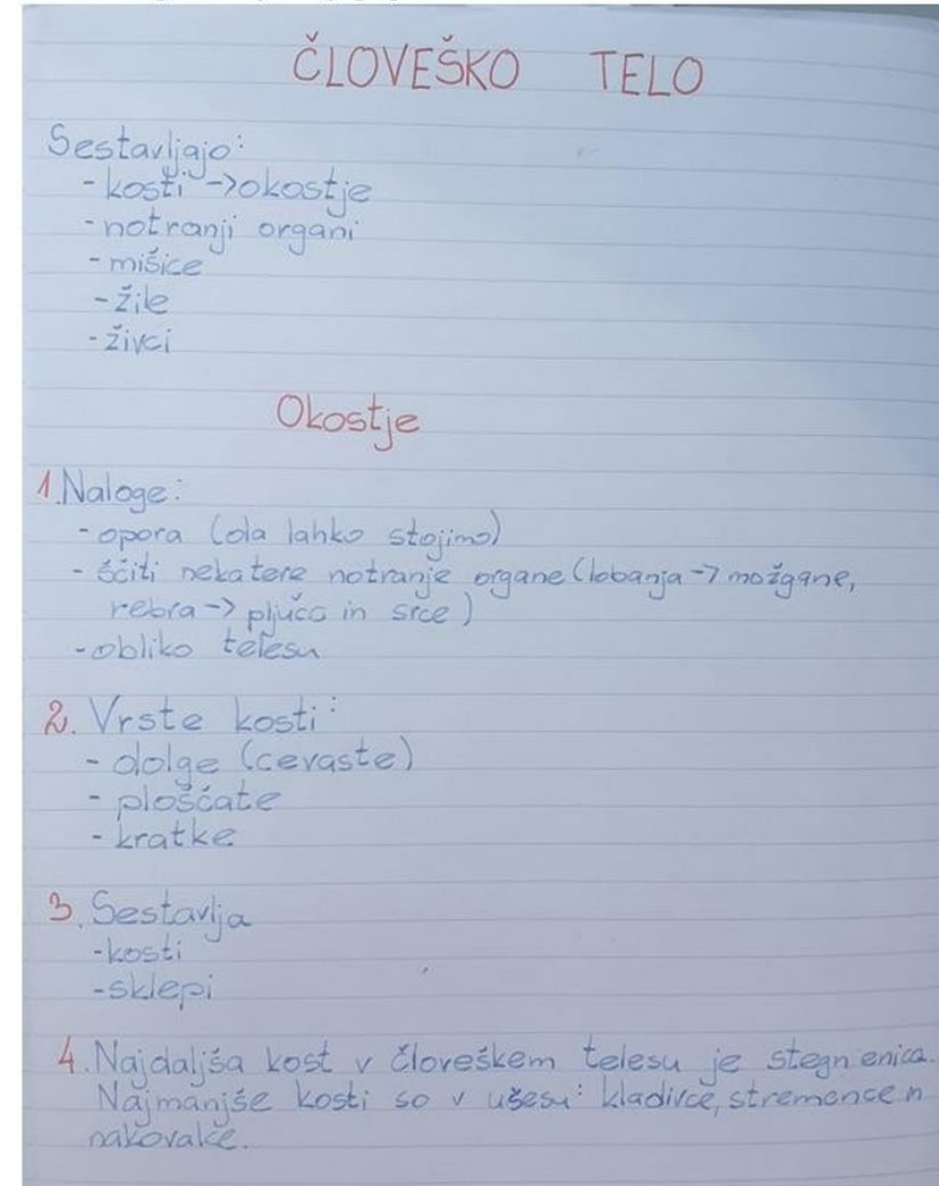 ČLOVEŠKO TELO
Sestavljajo:
- kosti -> okostje
- notranji organi
- mišice
- žile
- živci
Okostje
1. Naloge:
- opora (da lahko stojimo)
- ščiti nekatere notranje organe (lobanja -> možgane,
rebra -> pljuča in srce)
- obliko telesu
2. Vrste kosti:
- dolge (cevaste)
- ploščate
- kratke
3. Sestavlja
- kosti
- sklepi
4. Najdaljša kost v človeškem telesu je stegnenica.
Najmanjše kosti so v ušesu: kladivce, stremence n
nakovalce.